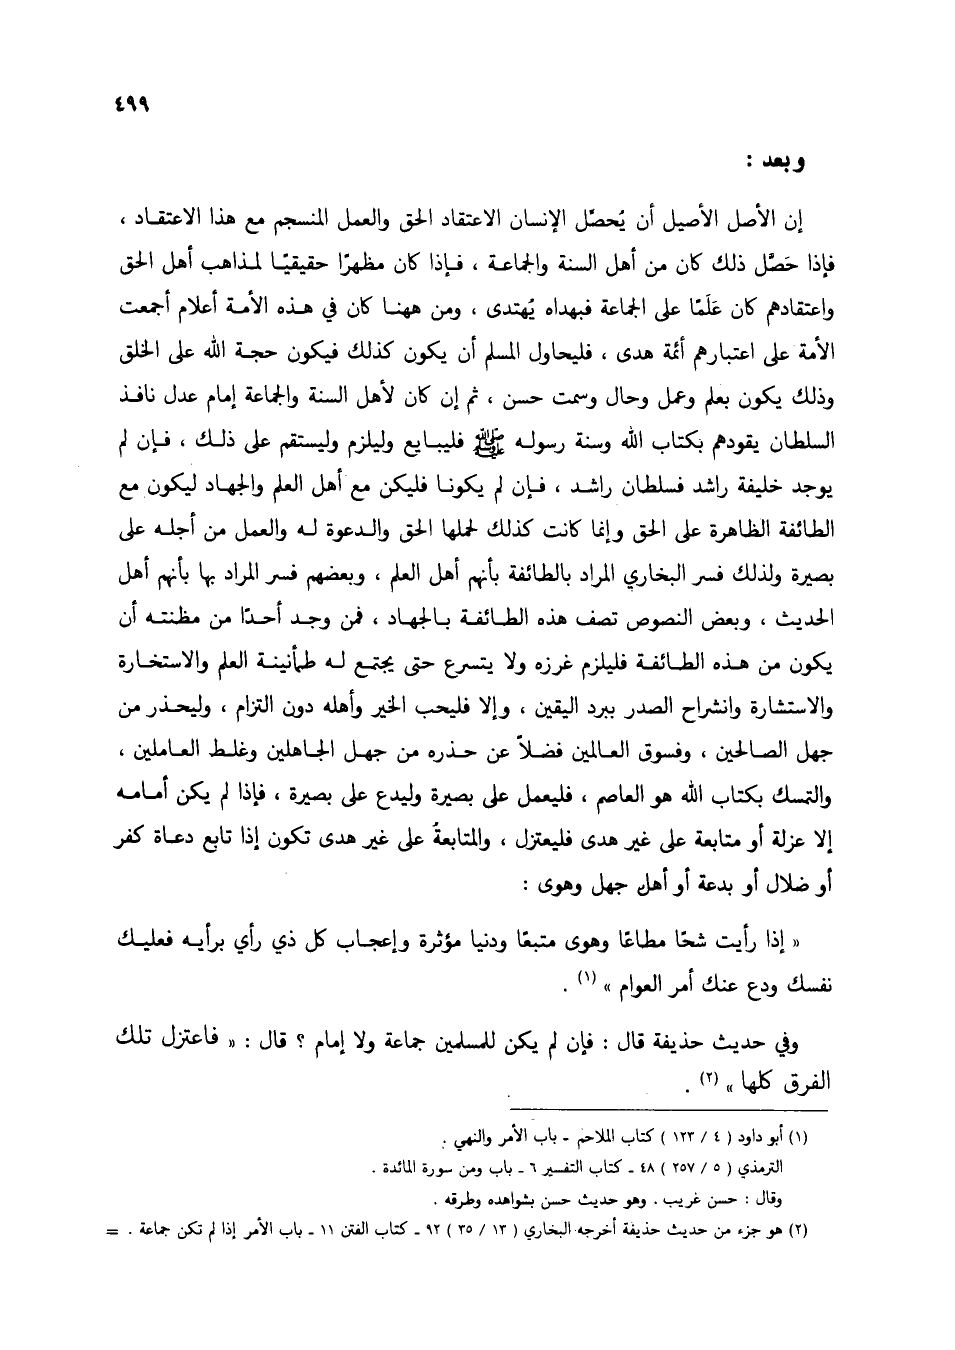 ٤٩٩
وبعد :
إن الأصل الأصيل أن يُحصِّل الإنسان الاعتقاد الحق والعمل المنسجم مع هذا الاعتقـاد ،
فإذا حَصَّل ذلك كان من أهل السنة والجماعـة ، فـإذا كان مظهرًا حقيقيًا لمـذاهب أهل الحق
واعتقادهم كان عَلَمًا على الجماعة فبهداه يُهتدى ، ومن ههنـا كان في هـذه الأمـة أعلام أجمعت
الأمة على اعتبارهم أئمة هدى ، فليحاول المسلم أن يكون كذلك فيكون حجـة الله على الخلق
وذلك يكون بعلم وعمل وحال وسمت حسن ، ثم إن كان لأهل السنة والجماعة إمام عدل نافـذ
السلطان يقودهم بكتاب الله وسنة رسولـه ﷺ فليبـايع وليلزم وليستقم على ذلـك ، فـإن لم
يوجد خليفة راشد فسلطان راشـد ، فـإن لم يكونـا فليكن مع أهل العلم والجهـاد ليكون مع
الطائفة الظاهرة على الحق وإنما كانت كذلك لحملها الحق والـدعوة لـه والعمل من أجلـه على
بصيرة ولذلك فسر البخاري المراد بالطائفة بأنهم أهل العلم ، وبعضهم فسر المراد بها بأنهم أهل
الحديث ، وبعض النصوص تصف هذه الطـائفـة بـالجهاد ، فمن وجـد أحـدًا من مظنتـه أن
يكون من هـذه الطـائفـة فليلزم غرزه ولا يتسرع حتى يجتمع لـه طمأنينـة العلم والاستخـارة
والاستشارة وانشراح الصدر ببرد اليقين ، وإلا فليحب الخير وأهله دون التزام ، وليحـذر من
جهل الصـالحين ، وفسوق العـالمين فضلاً عن حـذره من جهـل الجـاهلين وغلـط العـاملين ،
والتمسك بكتاب الله هو العاصم ، فليعمل على بصيرة وليدع على بصيرة ، فإذا لم يكن أمـامـه
إلا عزلة أو متابعة على غير هدى فليعتزل ، والمتابعةُ على غير هدى تكون إذا تابع دعـاة كفر
أو ضلال أو بدعة أو أهل جهل وهوى :
« إذا رأيت شحًا مطاعًا وهوى متبعًا ودنيا مؤثرة وإعجـاب كل ذي رأي برأيـه فعليـك
نفسك ودع عنك أمر العوام » (١) .
وفي حديث حذيفة قال : فإن لم يكن للمسلمين جماعة ولا إمام ؟ قال : « فاعتزل تلك
الفرق كلها » (٢) .
(١) أبو داود ( ٤ / ١٢٣ ) كتاب الملاحم ـ باب الأمر والنهي .
الترمذي ( ٥ / ٢٥٧ ) ٤٨ ـ كتاب التفسير ٦ ـ باب ومن سورة المائدة .
وقال : حسن غريب . وهو حديث حسن بشواهده وطرقه .
(٢) هو جزء من حديث حذيفة أخرجه البخاري ( ١٣ / ٣٥ ) ٩٢ ـ كتاب الفتن ١١ ـ باب الأمر إذا لم تكن جماعة . =